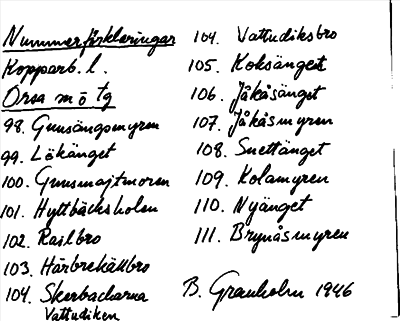 Nummerförklaringar
Kopparb. l.
Orsa m ō tg
98. Gunsängsmyren
99. Lökänget
100. Gunsmajtmoren
101. Hyttbäcksholen
102. Raslbro
103. Härbrekällbro
104. Skerbackarna
Vattudiken
104. Vattudiksbro
105. Koksänget
106. Jåkåsänget
107. Jåkåsmyren
108. Snettänget
109. Kolamyren
110. Nyänget
111. Brynåsmyren
B. Granholm 1946